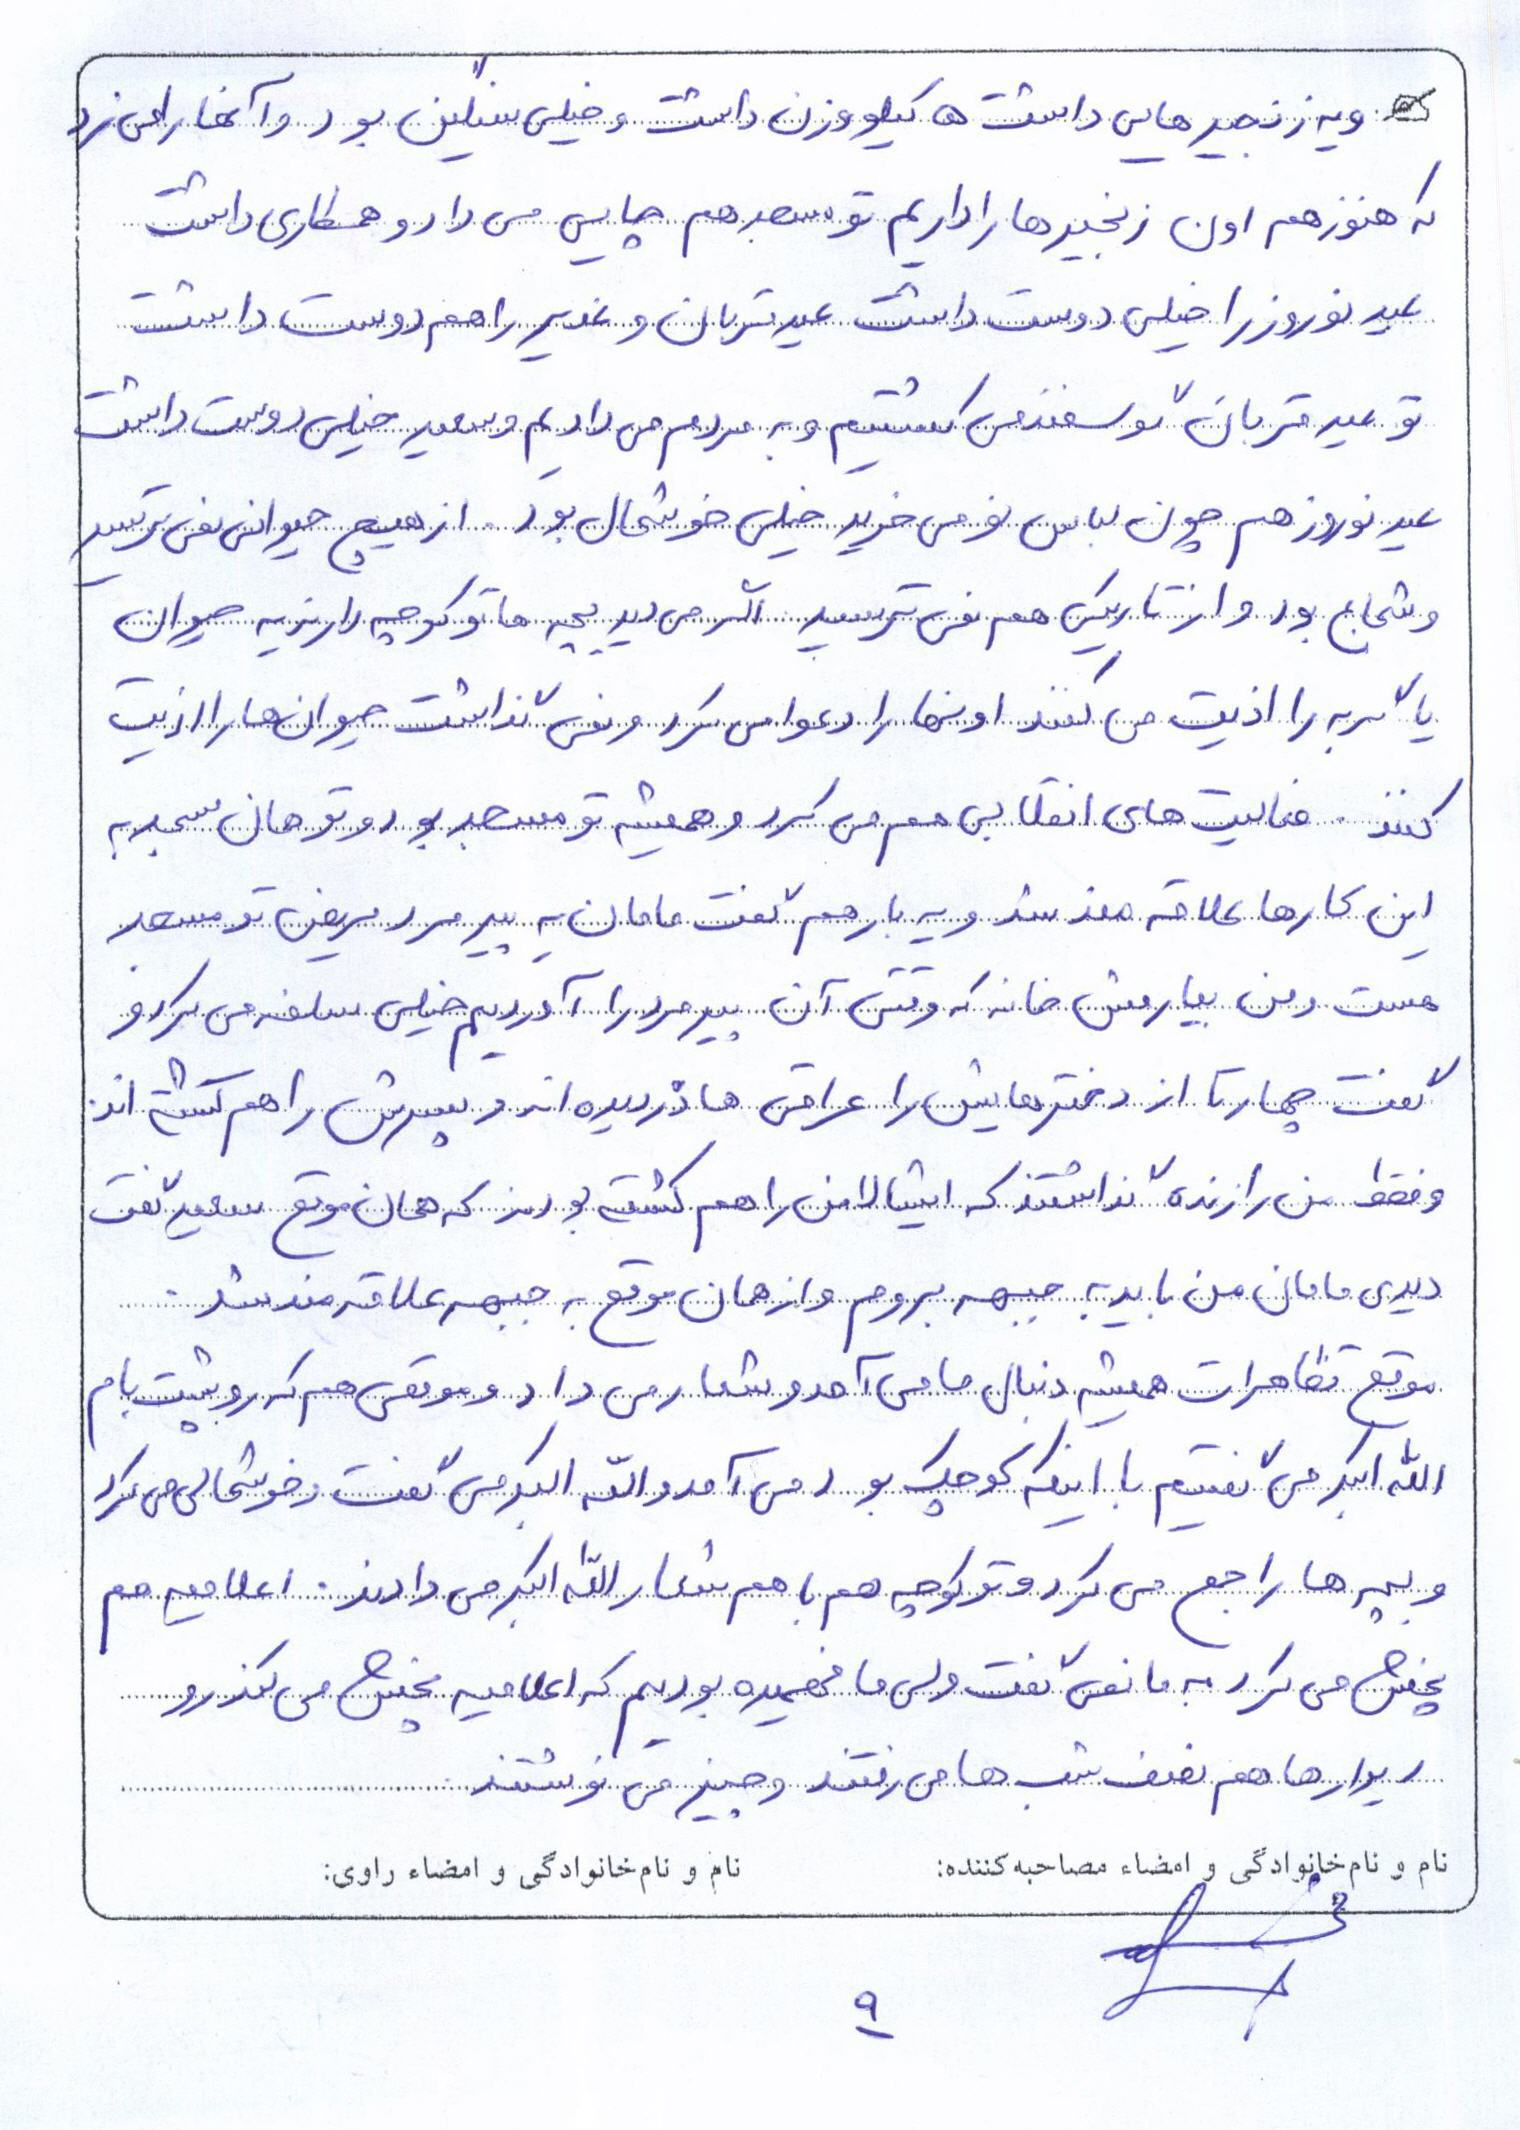 ویه زنجیرهایی داشت ۵ کیلو وزن داشت و خیلی سنگین بود و آنها را می زد
که هنوز هم اون زنجیرها را داریم تو مسجد هم چایی می داد و همکاری داشت
عید نوروز را خیلی دوست داشت عید قربان و غدیر را هم دوست داشت
تو عید قربان گوسفند می کشتیم و به مردم می دادیم و سعید خیلی دوست داشت
عید نوروز هم چون لباس نو می خرید خیلی خوشحال بود . از هیچ حیوانی نمی ترسید
و شجاع بود و از تاریکی هم نمی ترسید . اگر می دید بچه ها تو کوچه دارند یه حیوان
یا گربه را اذیت می کنند اونها را دعوا می کرد و نمی گذاشت حیوان ها را اذیت
کنند . فعالیت های انقلابی هم می کرد و همیشه تو مسجد بود و تو همان مسجد به
این کارها علاقه مند شد و یه بار هم گفت مامان یه پیرمرد مریض تو مسجد
هست بیارمش خانه که وقتی آن پیرمرد را آوردیم خیلی سلفه می کرد و
گفت چهارتا از دخترهایش را عراقی ها دزدیده اند و پسرش را هم کشته اند
و فقط من را زنده گذاشتند که ایشالا من را هم کشته بودند که همان موقع سعید گفت
دیدی مامان من باید به جبهه بروم و از همان موقع به جبهه علاقه مند شد .
موقع تظاهرات همیشه دنبال ما می آمد و شعار می داد و موقعی هم که رو پشت بام
الله اکبر می گفتیم با اینکه کوچک بود می آمد و الله اکبر می گفت و خوشحالی می کرد
و بچه ها را جمع می کرد و تو کوچه هم با هم شعار الله اکبر می دادند . اعلامیه هم
پخش می کرد به ما نمی گفت ولی ما فهمیده بودیم که اعلامیه پخش می کند رو
دیوارها هم نصف شب ها می رفتند و چیز می نوشتند .
نام و نام‌خانوادگی و امضاء مصاحبه‌کننده:
نام و نام‌خانوادگی و امضاء راوی:
۹